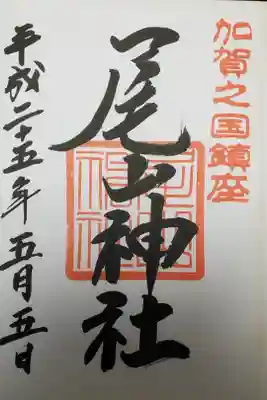 加賀之国鎮座
尾山神社
平成二十五年五月五日